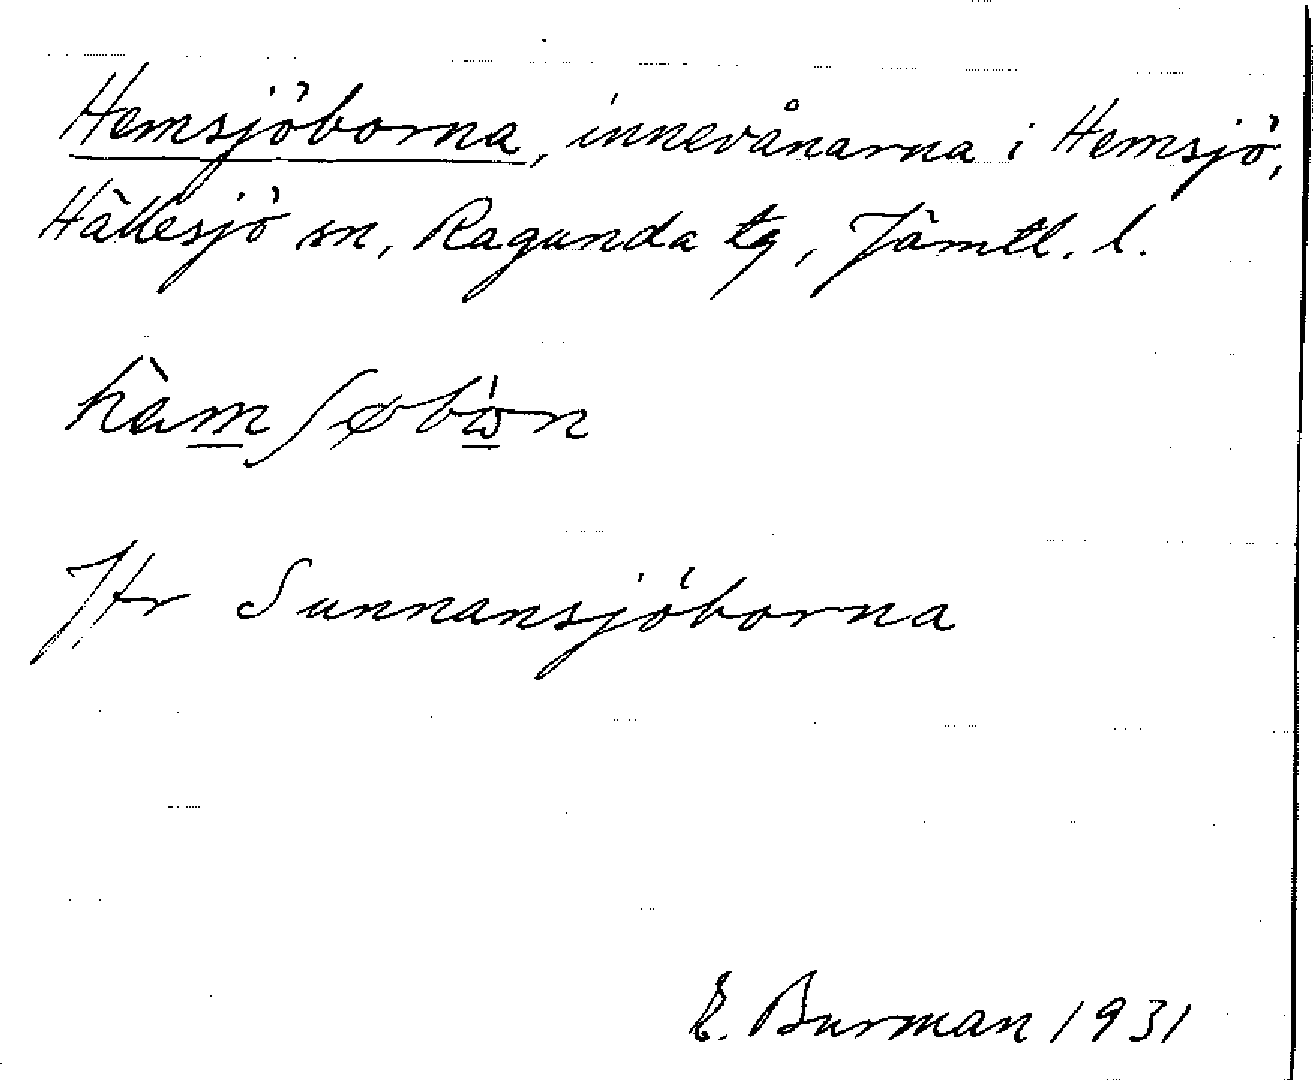 Hemsjöborna, innevånarna i Hemsjö,
Hällesjö sn, Ragunda tg, Jämtl. l.
hàmʃøbὼn
Jfr Sunnansjöborna
E. Burman 1931